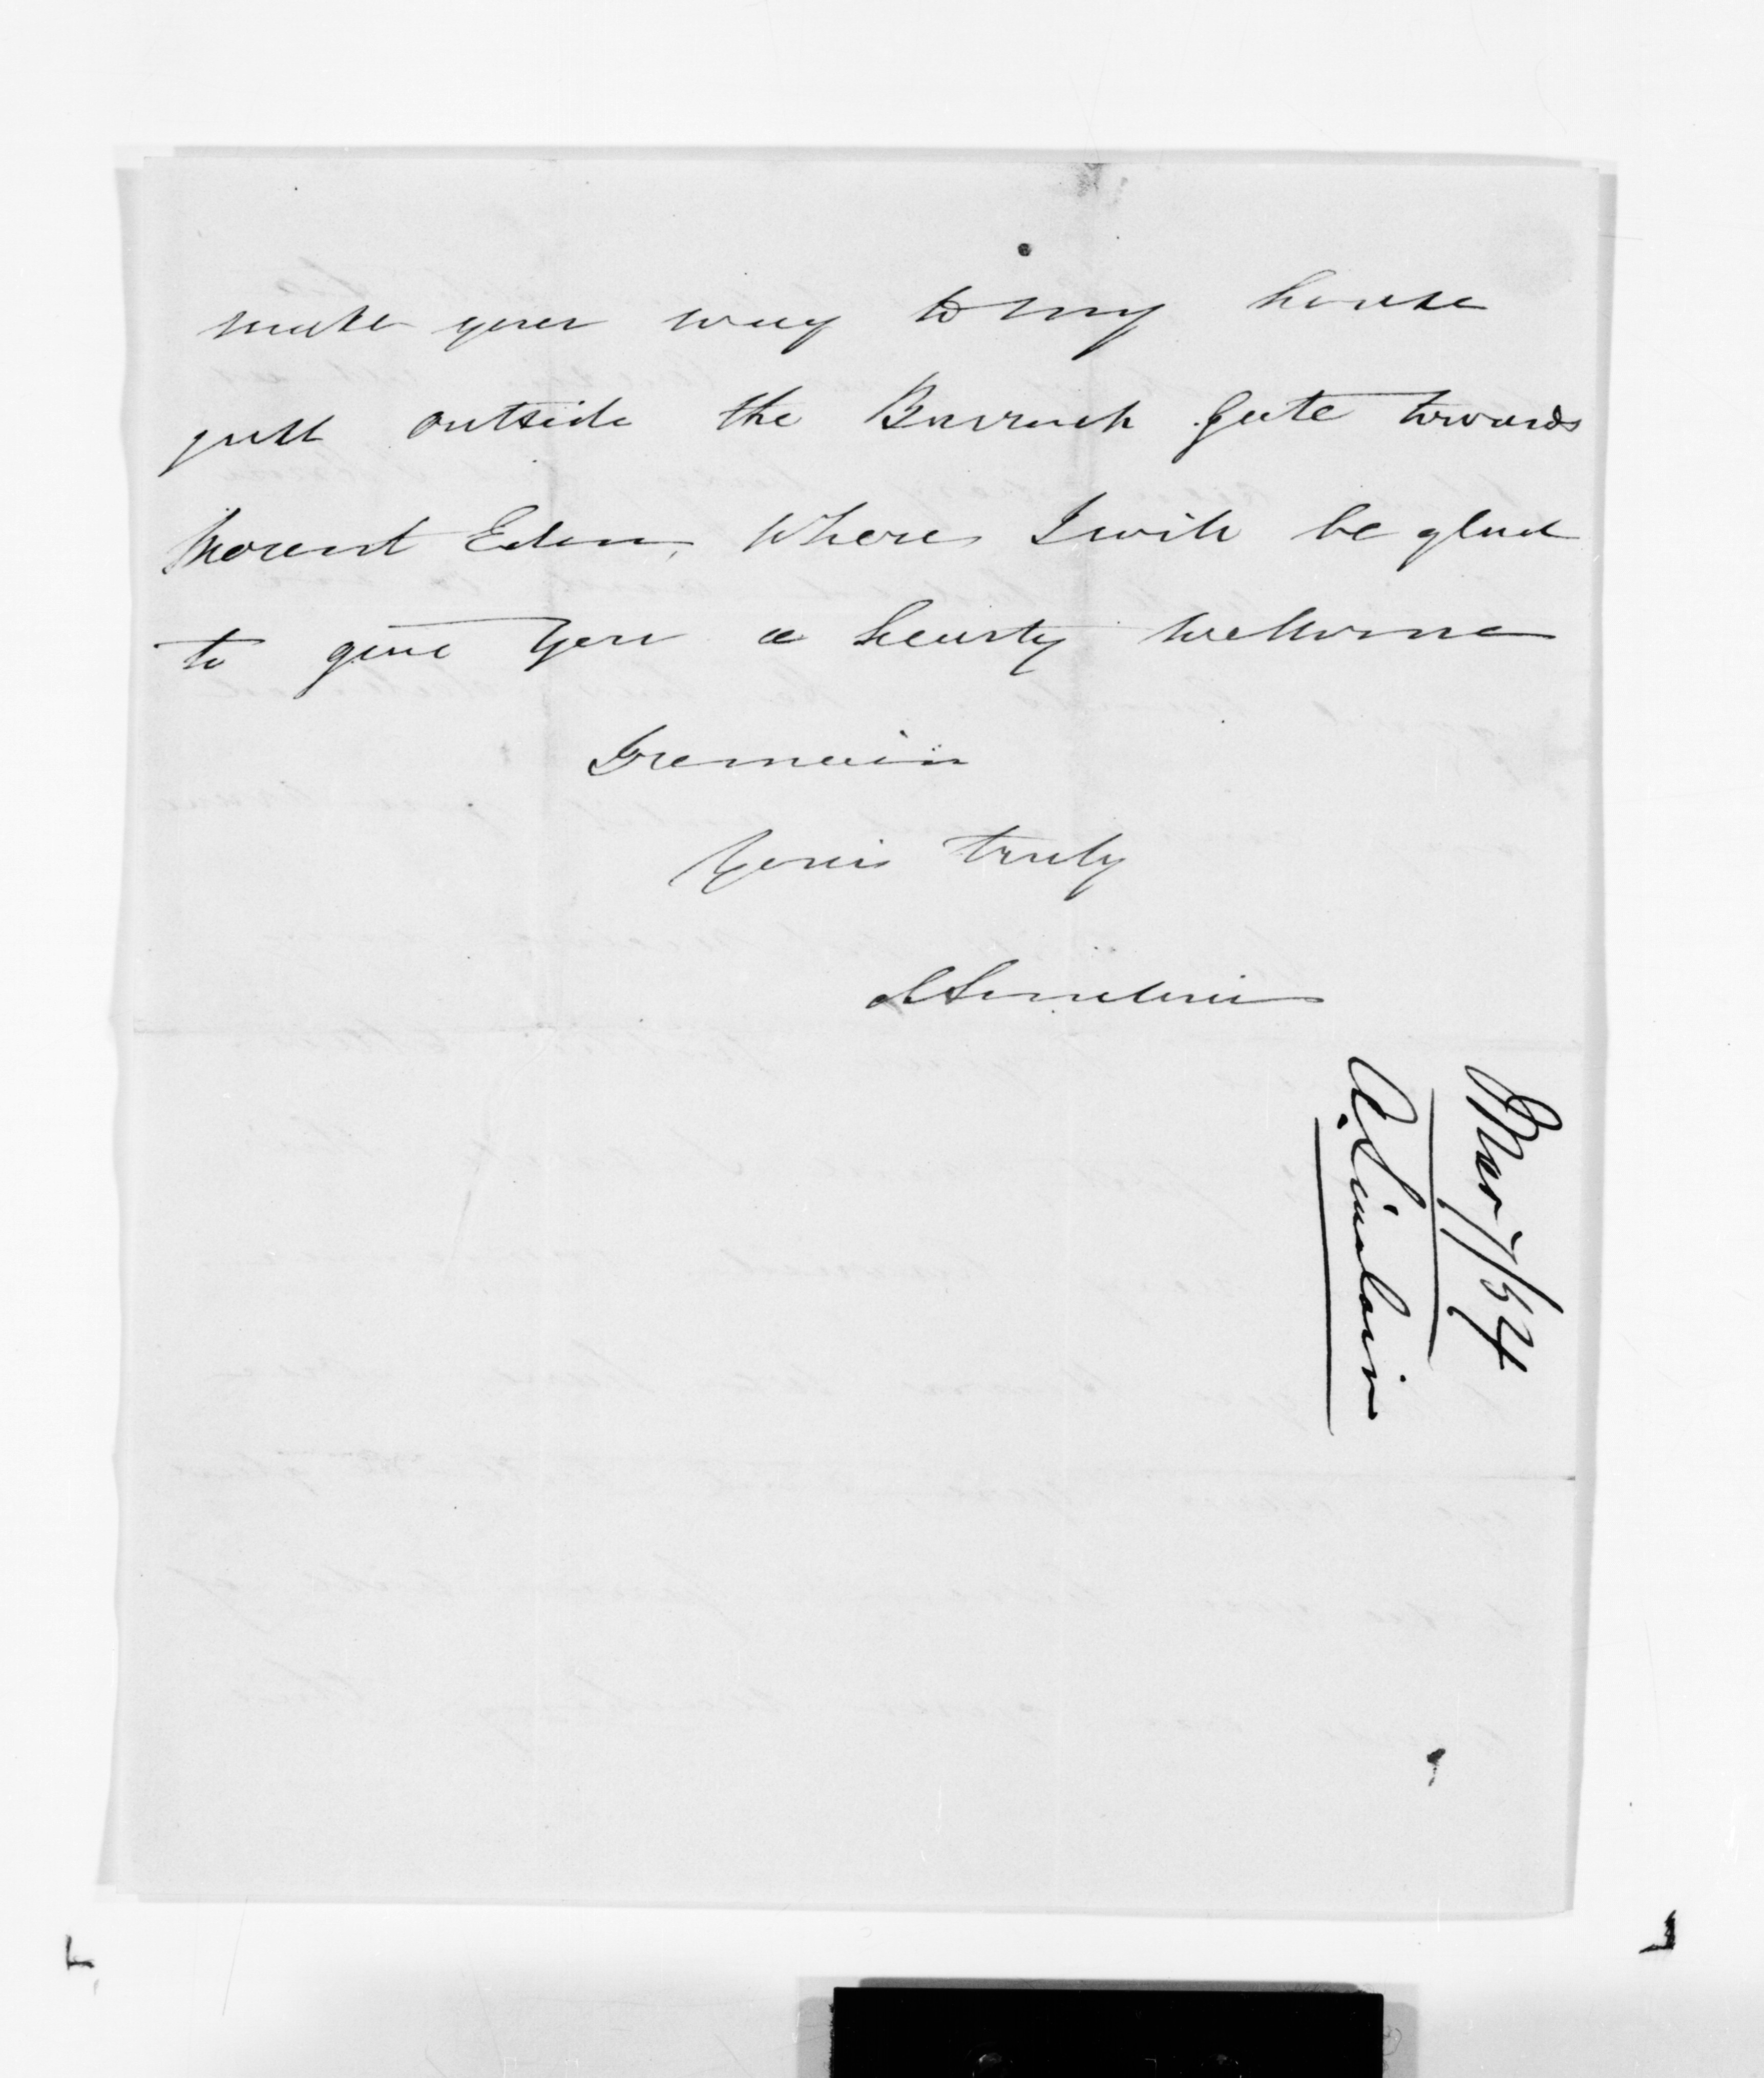 make your way to my house
just outside the Barrack Gate towards
Mount Eden, where I will be glad
to give you a hearty welcome
I remain
Yours truly
A Sinclair
Mar 7/54
A. Sinclair